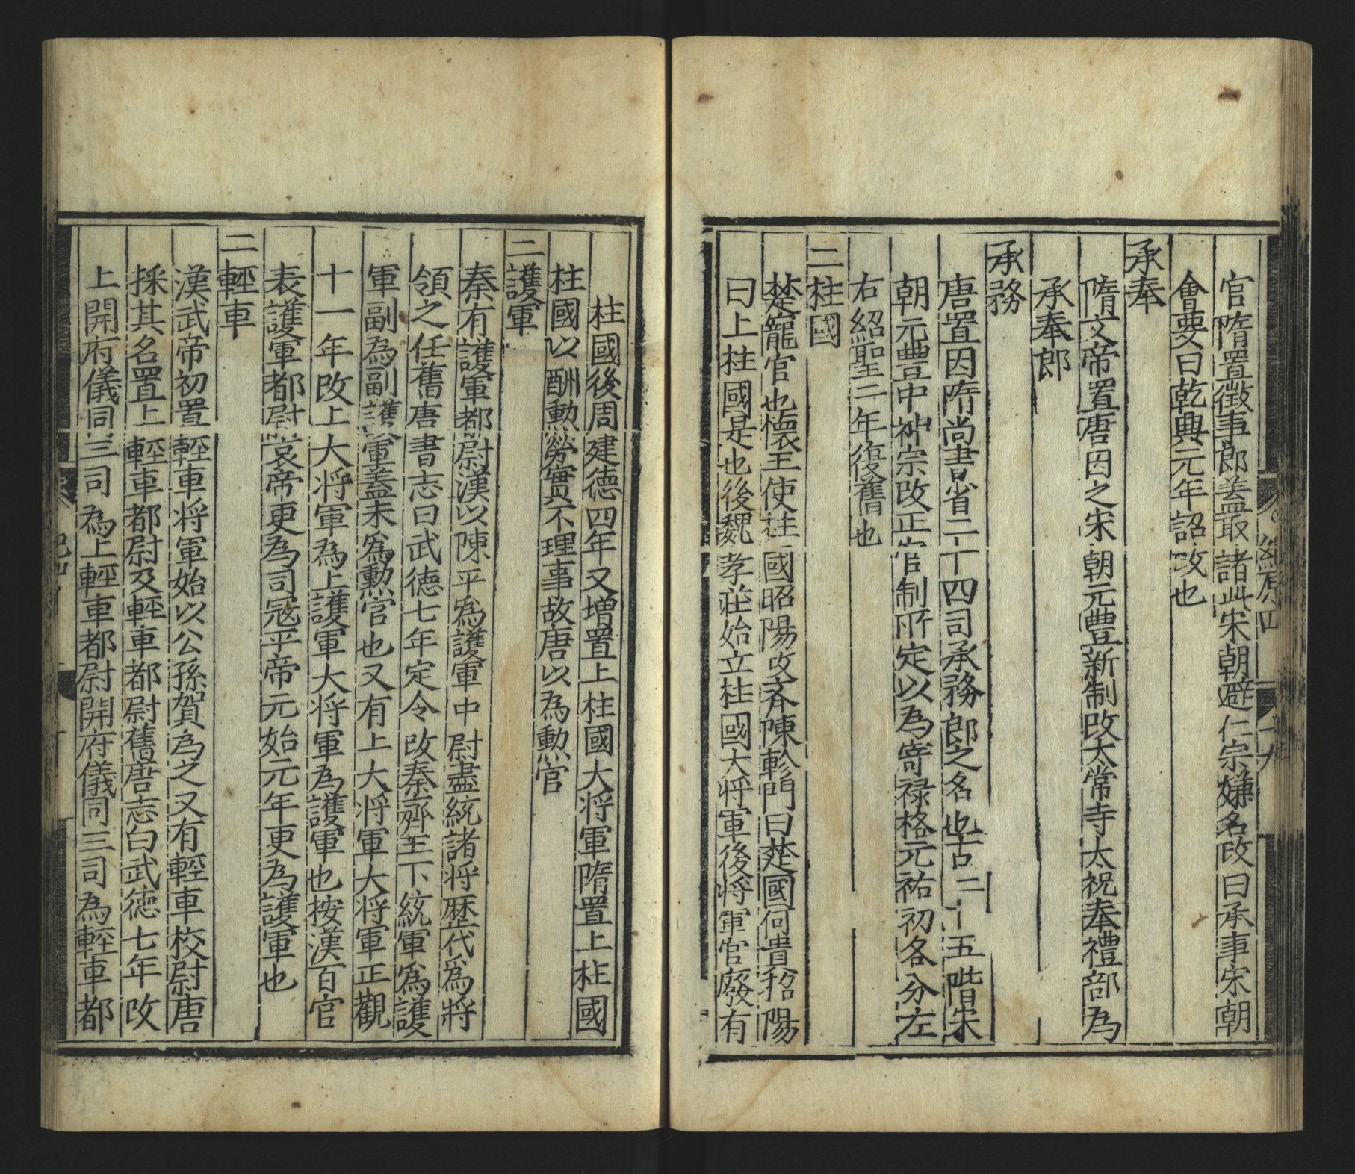 官隋置徴事郎蓋取諸此宋朝避仁宗嫌名改曰承事宋朝
會要曰乾興元年詔改也
承奉
隋文帝置唐因之宋朝元豐新制改太常寺太祝奉禮部為
承奉郎
承務
唐置因隋尚書省二十四司承務郎之名也古二十五階宋
朝元豐中神宗改正官制所定以為寄禄格元祐初各分左
右紹聖二年復舊也
二柱國
楚寵官也懷王使柱國昭陽攻齊陳軫問曰楚國何貴招陽
曰上柱國是也後魏孝莊始立柱國大将軍後将軍官廢有
柱國後周建德四年又增置上柱國大将軍隋置上柱國
柱國以酬勲勞實不理事故唐以為勲官
二護軍
秦有護軍都尉漢以陳平為護軍中尉盡統諸将歴代為将
領之任舊唐書志曰武德七年定令改秦齊至下統軍為護
軍副為副護軍蓋未為勲官也又有上大将軍大将軍正觀
十一年改上大将軍為上護軍大将軍為護軍也按漢百官
表護軍都尉哀帝更為司冦平帝元始元年更為護軍也
二輕車
漢武帝初置輕車将軍始以公孫賀為之又有輕車校尉唐
採其名置上輕車都尉及輕車都尉舊唐志白武德七年改
上開府儀同三司為上輕車都尉開府儀同三司為輕車都